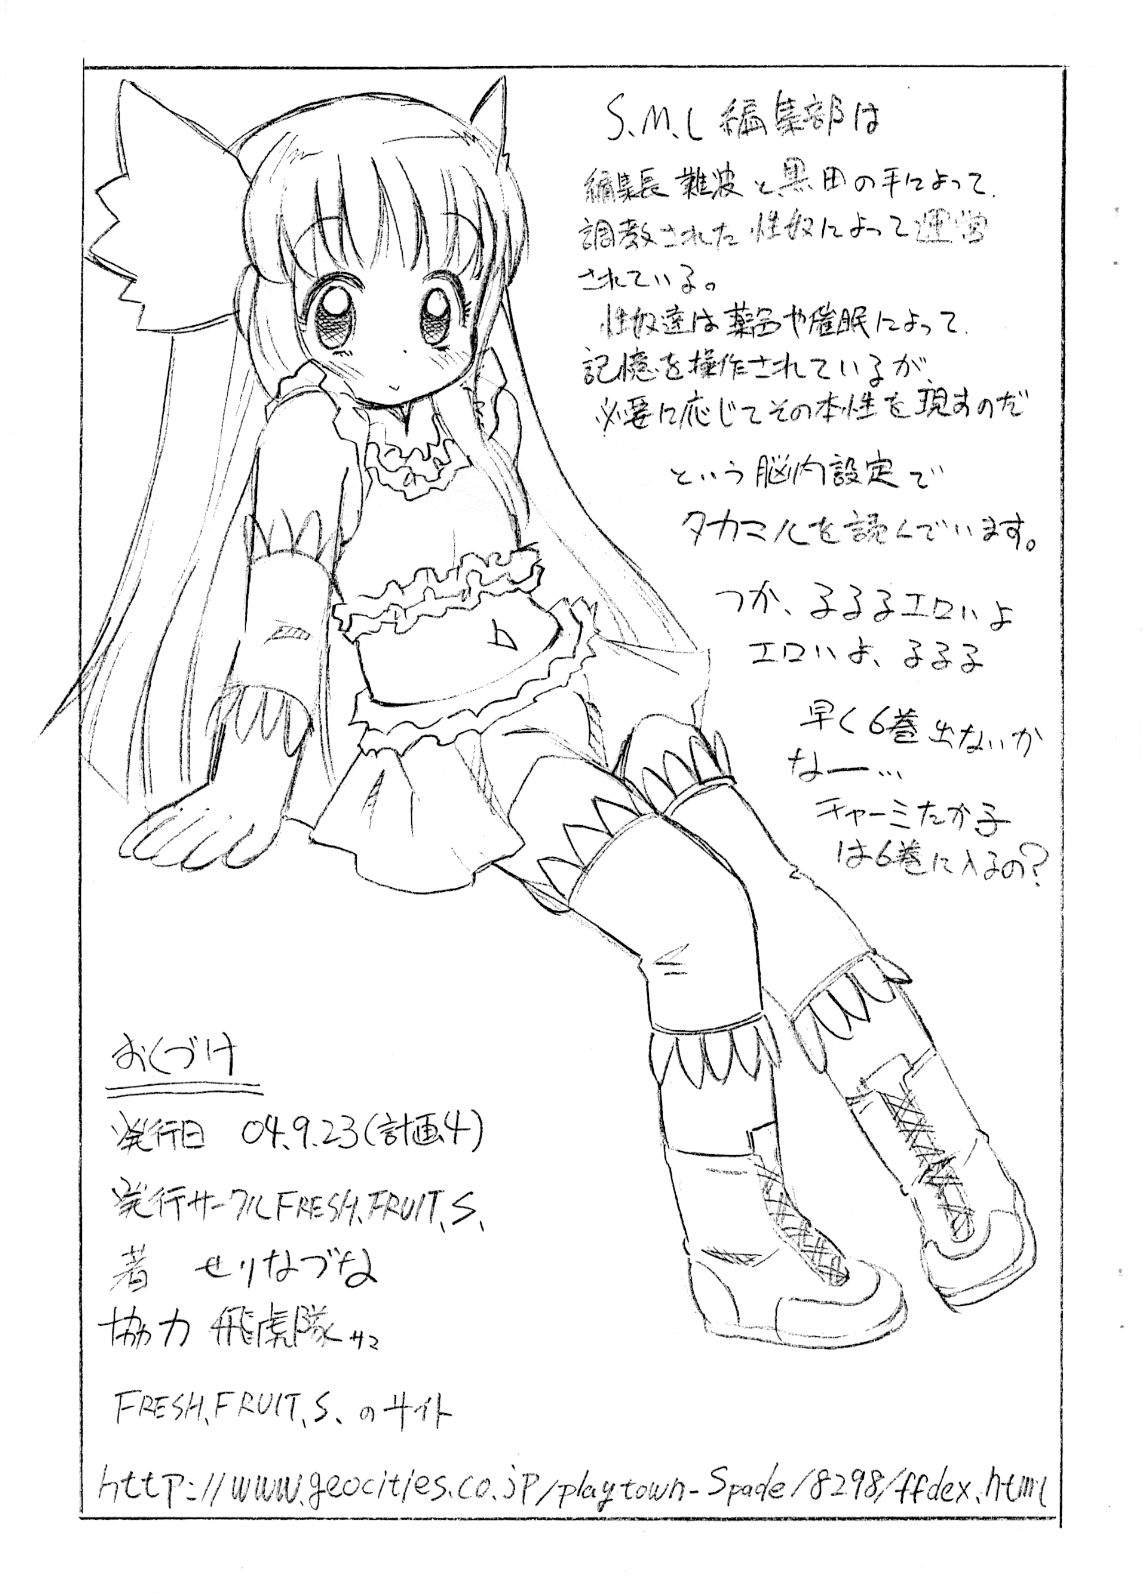 S.M.L 編集部は
編集長 難波と黒田の手によって、
調教された 性奴によって運営
されている。
性奴達は薬品や催眠によって、
記憶を操作されているが
必要に応じてその本性を現すのだ
という脳内設定で
タカマルを読んでいます。
つか、るるるエロいよ
エロいよ、るるる
早く6巻出ないか
なー…
チャーミたか子
は6巻に入るの？
おくづけ
発行日 04.9.23(計画4)
発行サークルFRESH.FRUIT.S.
著 せりなづな
協力 飛虎隊サマ
FRESH.FRUIT.S.のサイト
http://www.geocities.co.jp/playtown-Spade/8298/ffdex.html